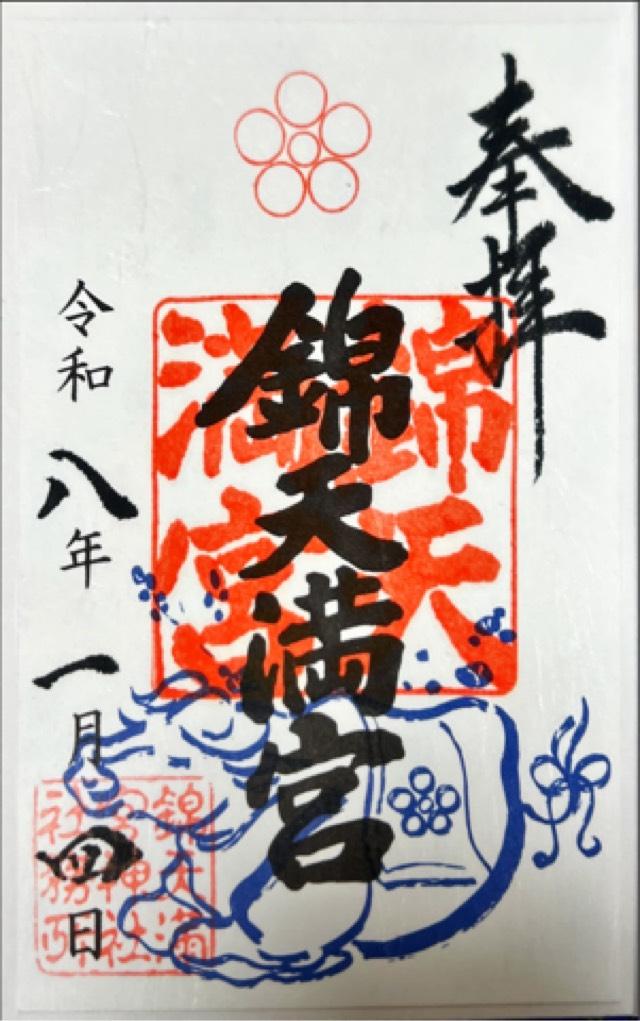 奉拝
錦天
満宮
錦天満宮
令和八年一月四日
錦天満
宮神社
社務所